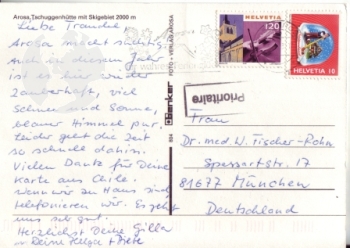 Arosa, Tschuggenhütte mit Skigebiet 2000 m
Liebe Traudel,
Arosa macht süchtig.
Auch in diesem Jahr
ist es hier wieder
zauberhaft, viel
Schnee und Sonne,
blauer Himmel pur,
leider geht die Zeit
so schnell dahin.
Vielen Dank für Deine
Karte aus Chile.
Wenn wir zu Haus sind
telefonieren wir. Es geht
uns sehr gut.
Herzlichst Deine
Deine Helga +
FOTO + VERLAG AROSA
HELVETIA
120
HELVETIA
Prioritaire
Frau
Dr. med. W. Fischer-
Spessartstr. 17
81677 München
Deutschland